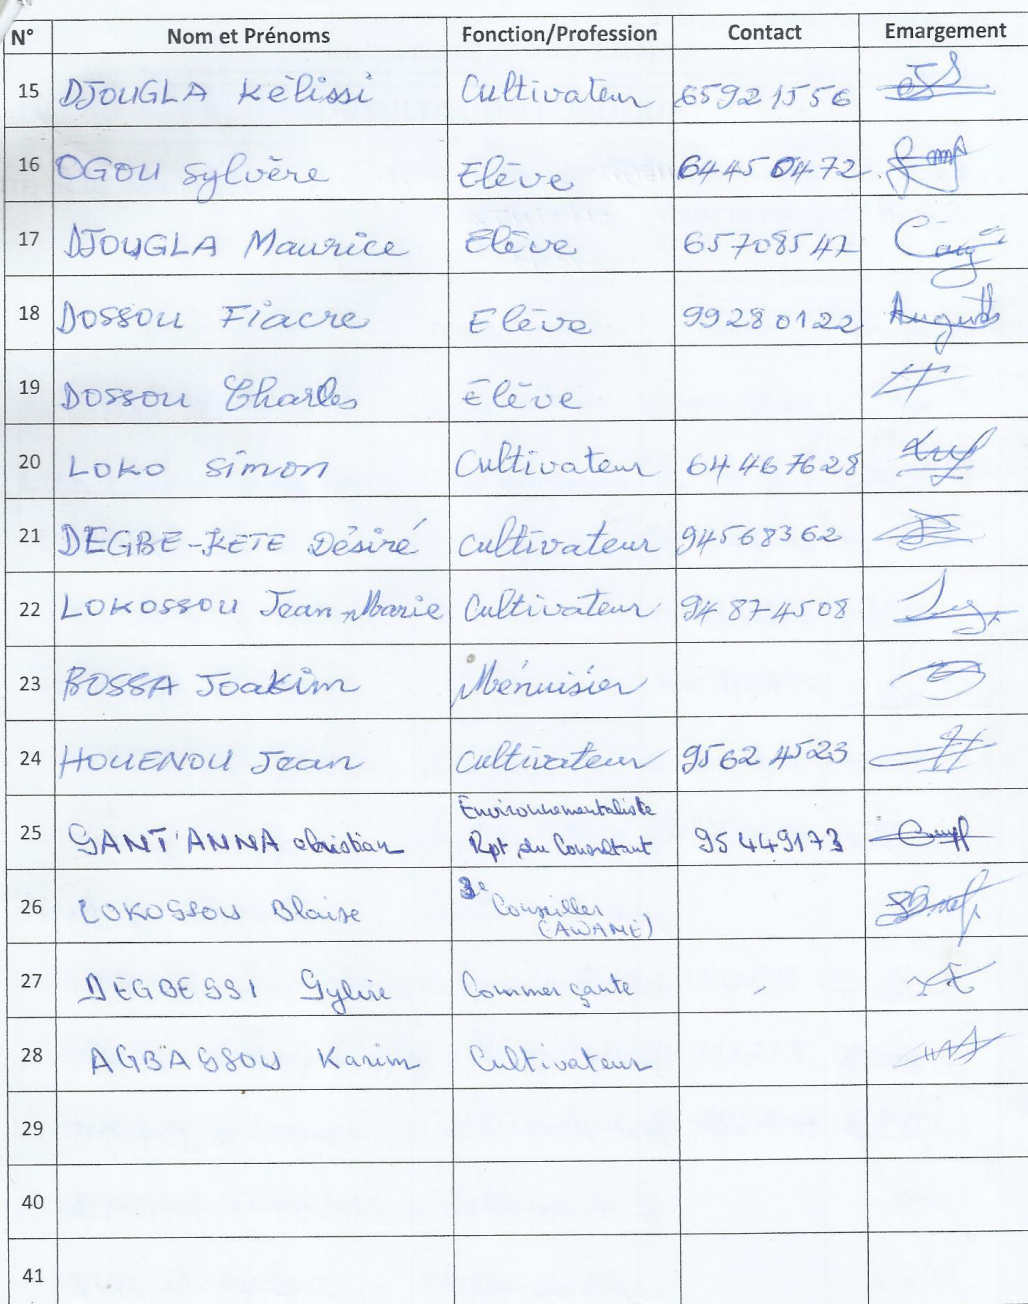 N° Nom et Prénoms Fonction/Profession Contact Emargement
15 DJOUGLA Kèlissi Cultivateur 65921556
16 OGOU Sylvère Elève 64450472
17 DJOUGLA Maurice Elève 65708547
18 DOSSOU Fiacre Elève 99280122 Augusts
19 DOSSOU Charles Elève
20 LOKO Simon Cultivateur 64467628
21 DEGBE-KETE Désiré Cultivateur 94568362
22 LOKOSSOU Jean-Marie Cultivateur 94874508
23 BOSSA Joakim Ménuisier
24 HOUENOU Jean Cultivateur 95624523
Environnementaliste
25 SANT'ANNA christian Rpt du Consultant 95449173
26 LOKOSSOU Blaise 3e Conseiller
(AWAME)
27 DEGBESSI Sylvie Commerçante -
28 AGBASSOU Karim Cultivateur
29
40
41